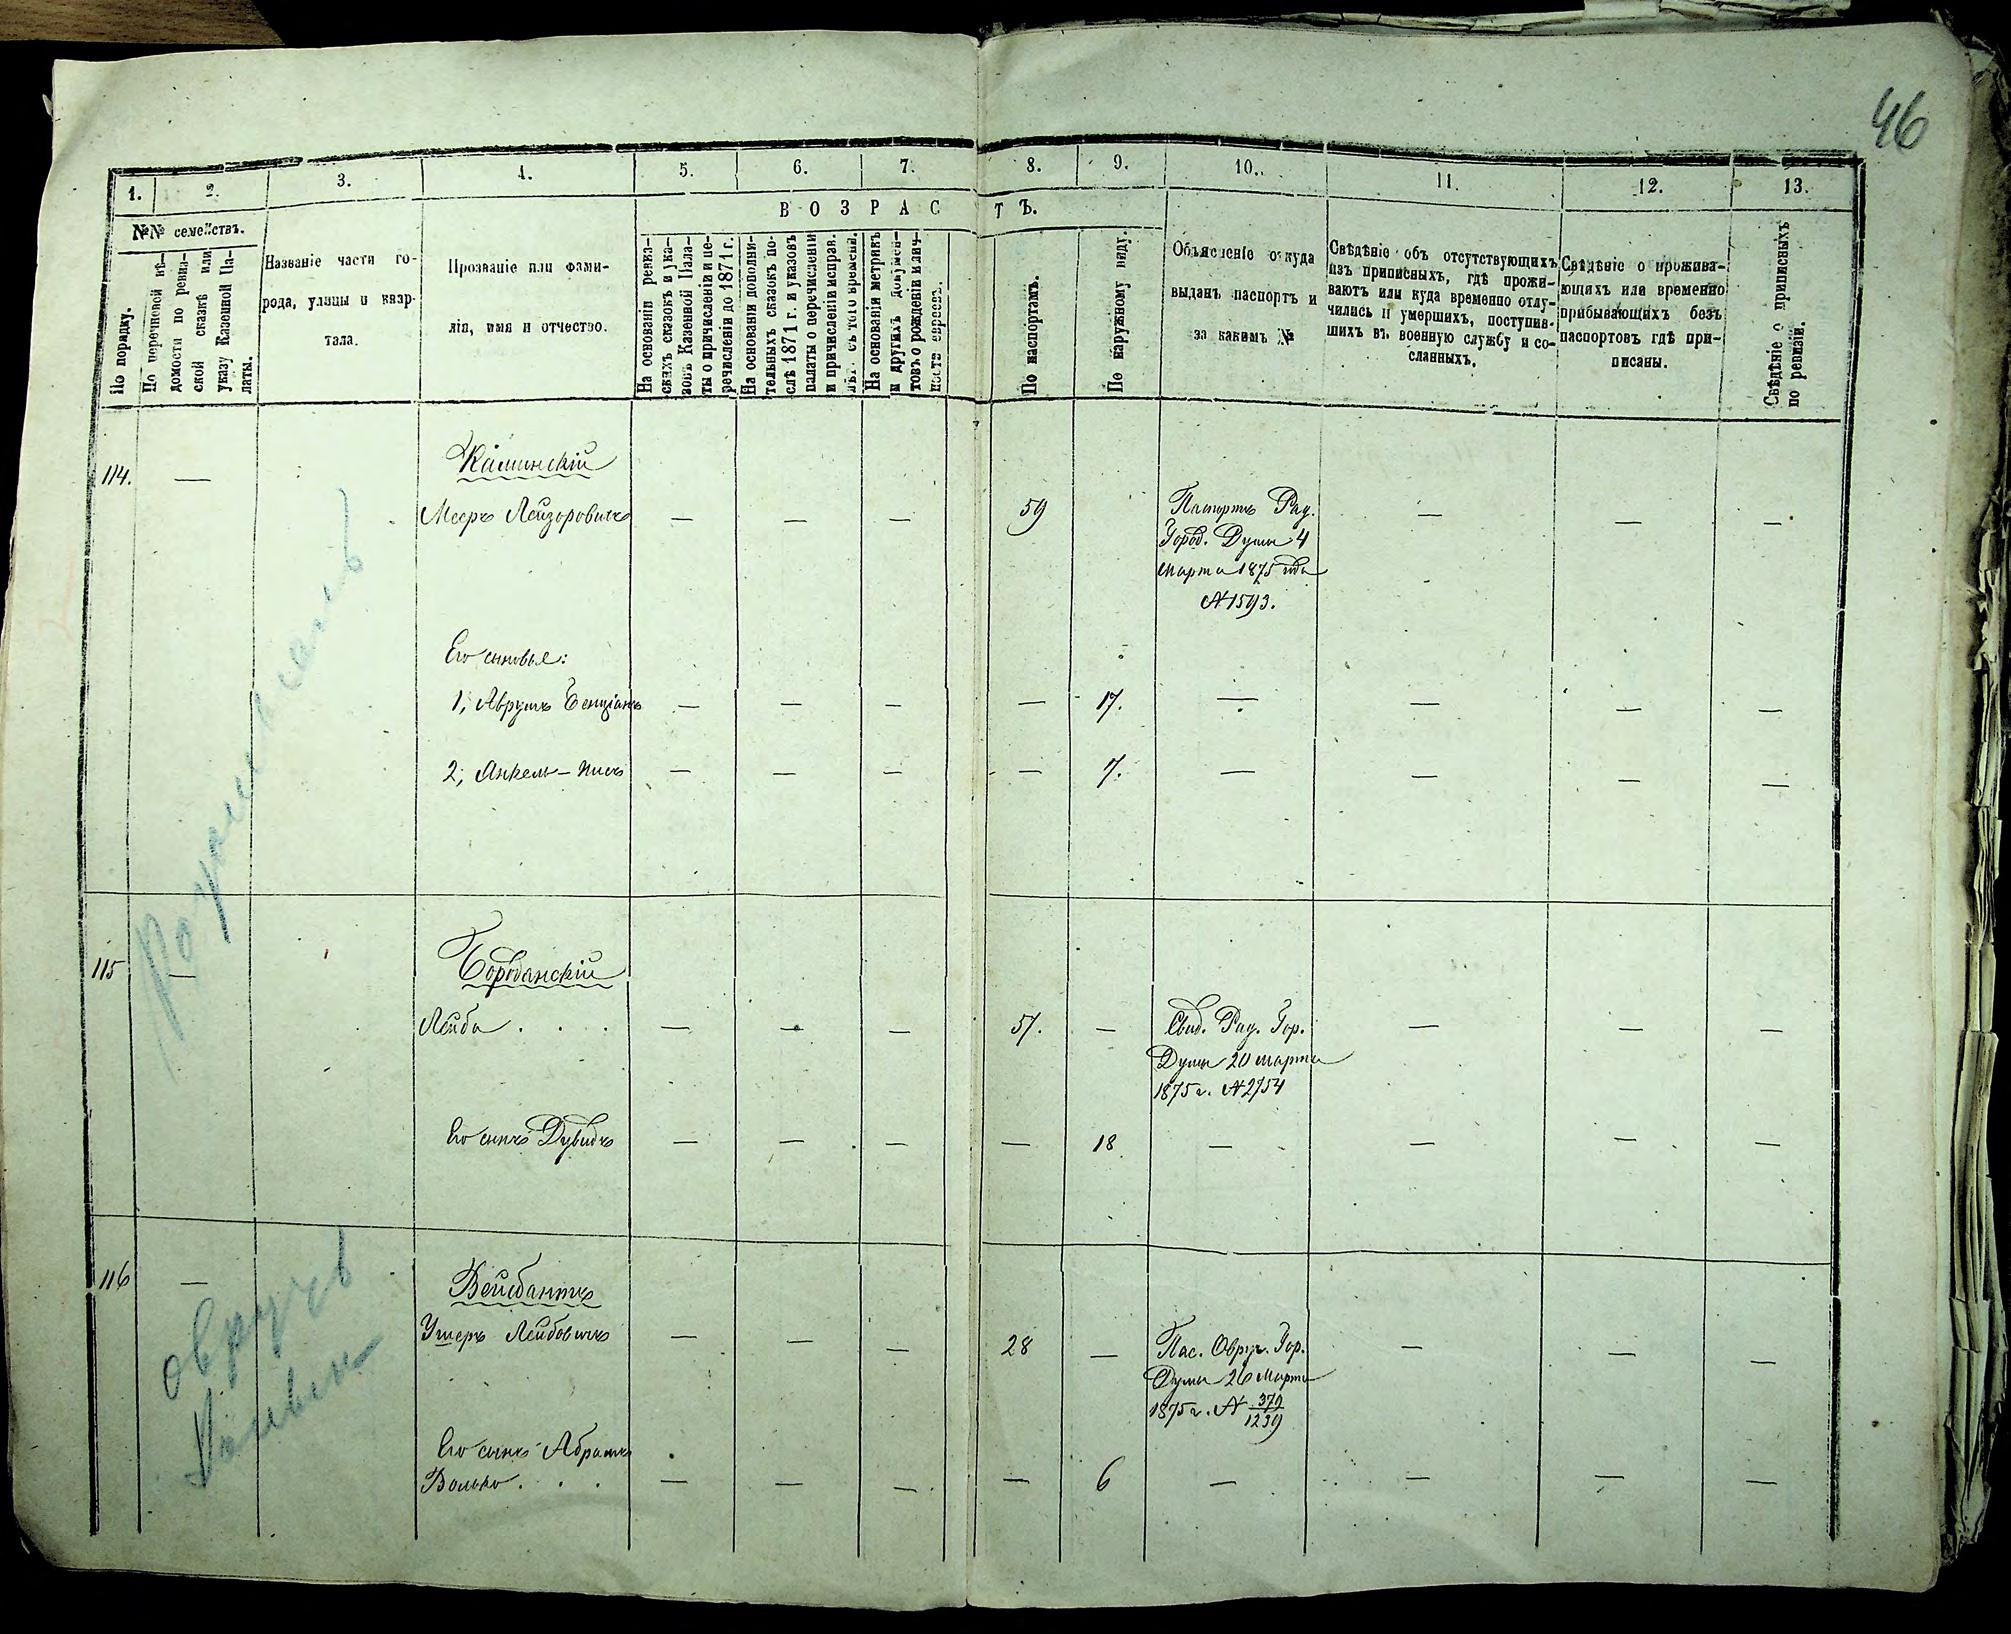 46
1. 2. 3. 4. 5. 6. 7. 8. 9. 10. 11. 12. 13.
№№ семействъ.
По порядку.
По перечневой вѣ-
домости по ревиз-
ской сказкѣ или
указу Казенной Па-
латы.
Названіе части го-
рода, улицы и квар-
тала.
Прозваніе или фами-
лія, имя и отчество.
ВОЗРАСТЪ.
На основаніи ревиз-
скихъ сказокъ и ука-
зовъ Казенной Пала-
ты о причисленіи и пе-
речисленіи до 1871 г.
На основаніи дополни-
тельныхъ сказокъ по-
слѣ 1871 г. и указовъ
палаты о перечисленіи
и причисленіи исправ.
лѣт. съ того времени.
На основаніи метрикъ
и другихъ докумен-
товъ о рожденіи и лич-
ности евреевъ.
По паспортамъ.
По наружному виду.
Объясненіе откуда
выданъ паспортъ и
за какимъ №
Свѣдѣніе объ отсутствующихъ
изъ приписныхъ, гдѣ прожи-
ваютъ или куда временно отлу-
чились и умершихъ, поступив-
шихъ въ военную службу и со-
сланныхъ.
Свѣдѣніе о прожива-
ющихъ или временно
прибывающихъ безъ
паспортовъ гдѣ при-
писаны.
Свѣдѣніе о приписныхъ
по ревизіи.
114. — Камінскій
Мееръ Лейзоровичъ — — — 59 Паспортъ Рад. — — —
Город. Думы 4
марта 1875 года
№ 1593.
Его сыновья:
1, Аврумъ Бенціанъ — — — — 17. — — — —
2, Янкель — — — — 7. — — — —
115 —
Лейба . . . — — — 57. — Свид. Рад. Гор. — — —
Думы 20 марта
1875 г. № 2754
Его сынъ Дувидъ — — — — 18 — — — —
116 — Вейсбантъ
Ушеръ Лейбовичъ — — — 28 — Пас. Овруч. Гор. — — —
Думы 26 Марта
1875 г. № 379/1239
Его сынъ Абрамъ
Волько . . . — — — — 6 — — — —
овручъ